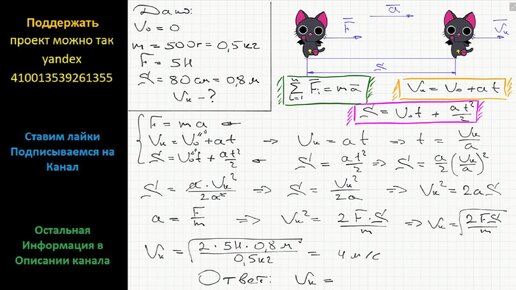 Поддержать
проект можно так
yandex
410013539261355
Ставим лайки
Подписываемся на
Канал
Остальная
Информация в
Описании канала
Дано:
V₀ = 0
m = 500г = 0,5кг
F = 5Н
S = 80см = 0,8м
Vк - ?
a
F F
S
∑ F⃗ᵢ = ma⃗
Vк = V₀ + at
S = V₀t + at²/2
F = ma
Vк = V₀ + at => Vк = at => t = Vк/a
S = V₀t + at²/2 => S = at²/2 => S = a/2 (Vк/a)²
S = a·Vк²/2a² => S = Vк²/2a => Vк² = 2aS
a = F/m => Vк² = 2FS/m => Vк = √(2FS/m)
Vк = √(2·5Н·0,8м/0,5кг) = 4м/с
Ответ: Vк =